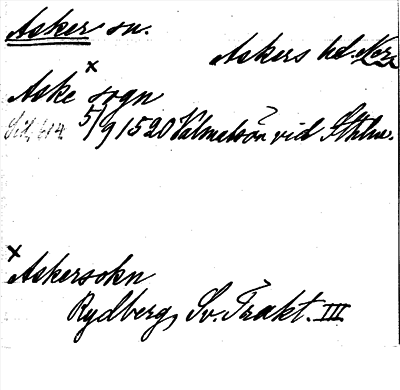 Asker sn.
Askers hd. Nrk
Aske x sogn
5/9 1520 Valmelsön vid Sthlm.
x Askersokn
Rydberg, Sv. Trakt. III